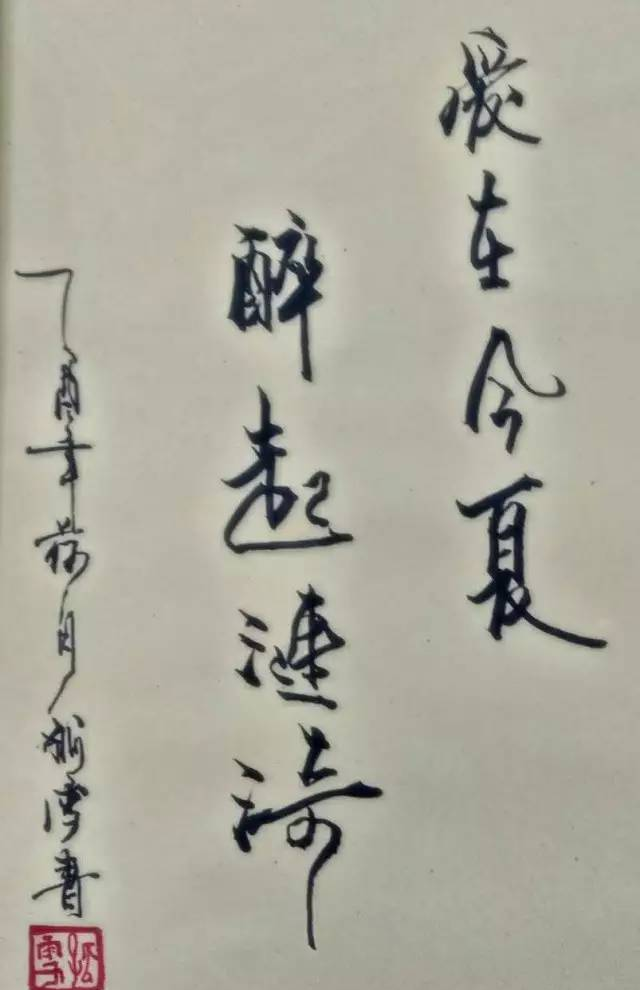 爱在今夏
醉起涟漪
丁酉年荷月孤雪书
孤雪